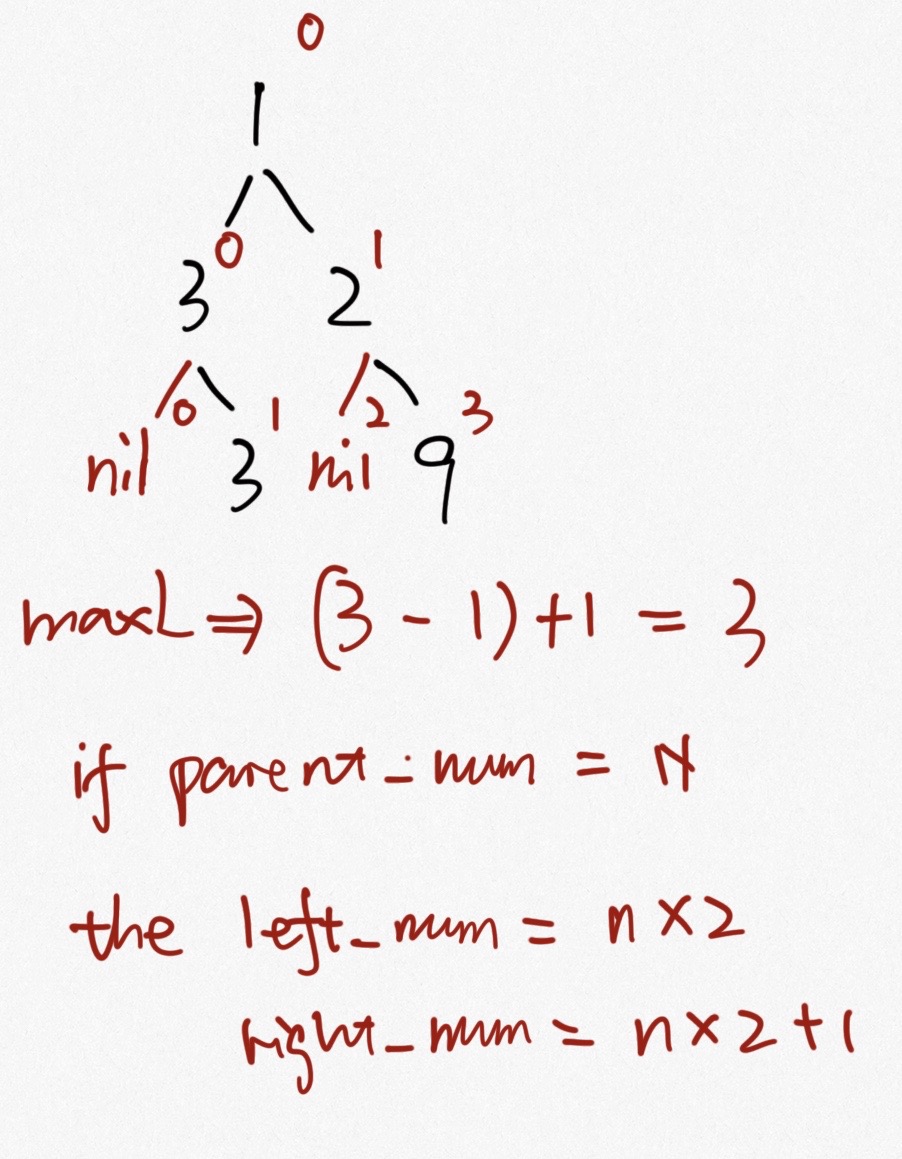 0
1
0 1
3 2
0 1 2 3
nil 3 nil 9
maxL ⇒ (3 - 1) + 1 = 3
if parent_num = N
the left_num = n × 2
right_num = n × 2 + 1